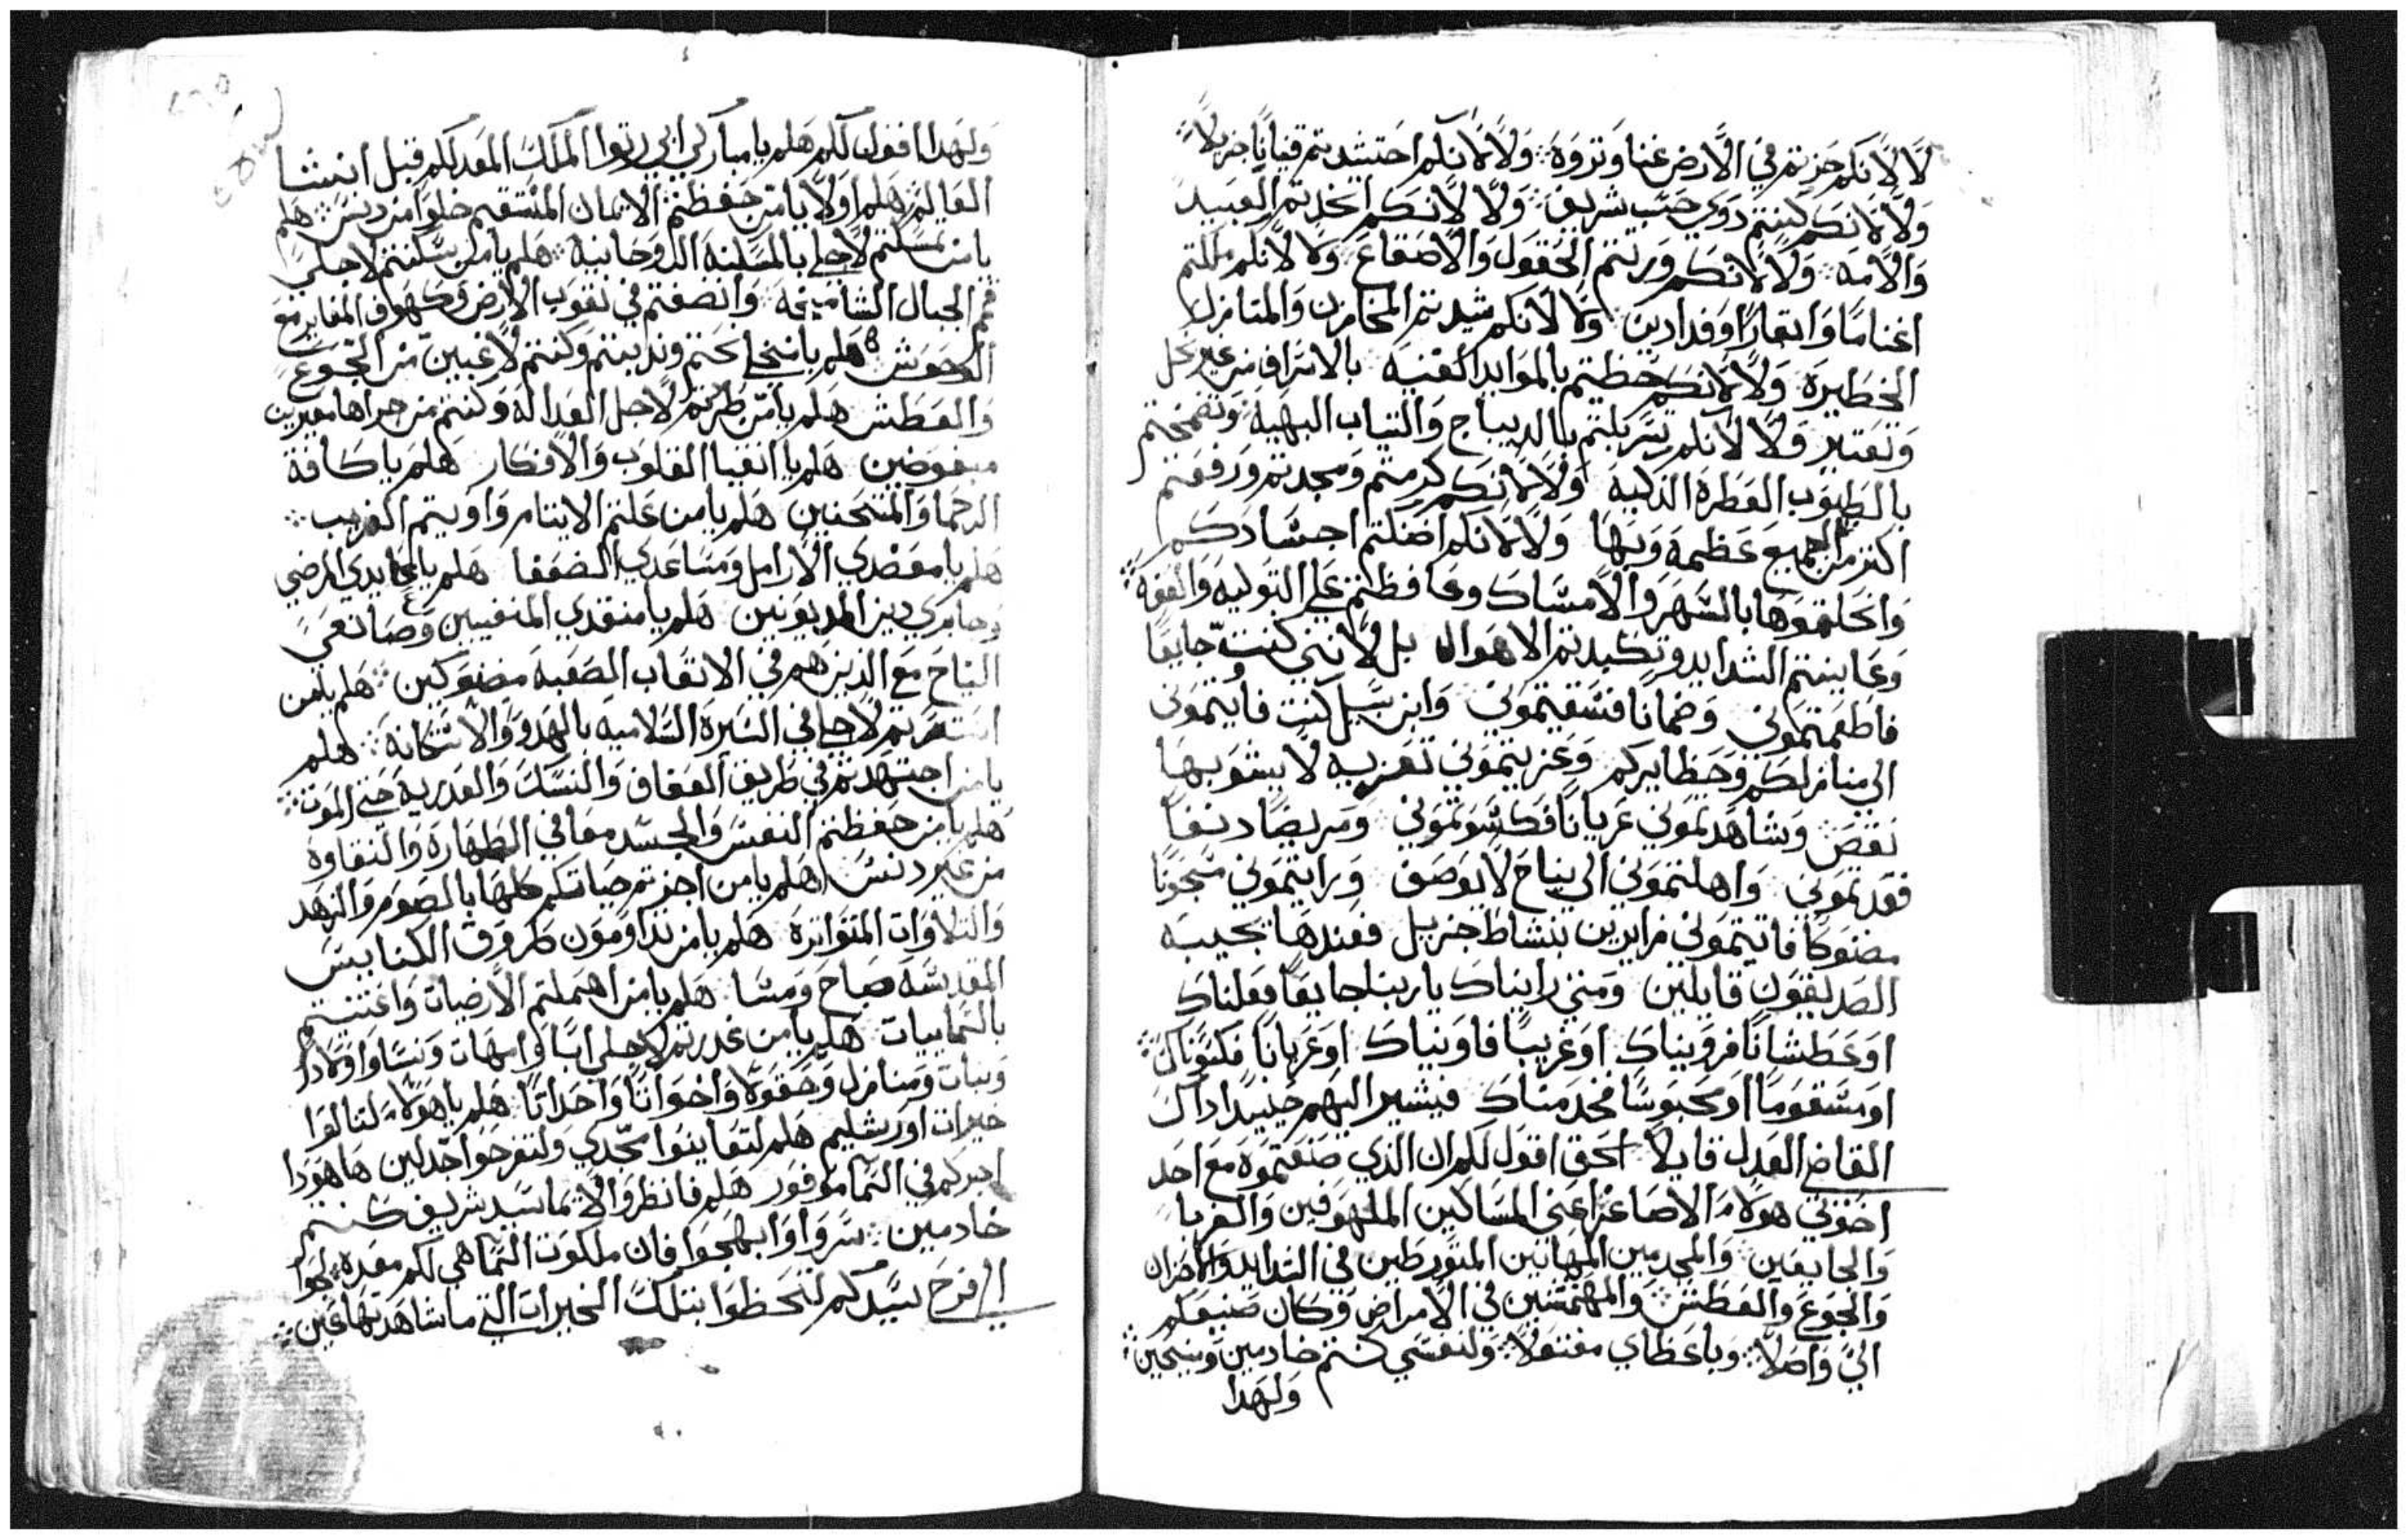 لا لانكم حزتم في الارض غنا وتروة ولا لانكم احتشدتم قنيانا جزيلا
ولا لانكم كنتم دوي حسب شريف ولا لانكم اتخدتم العبيد
والامه ولا لانكم ورتتم الحقول والاصقاع ولا لانكم ملكتم
اغناما وابقارا وفدادين ولا لانكم شيدتم المخازن والمنازل
الخطايرة ولا لانكم حظيتم بالموايد الغنيه بالاسراف من غير بخل
وتقتير ولا لانكم تسربلتم بالديباج والتياب البهية وتضمختم
بالطيوب العطرة الذكية ولا لانكم كرمتم ومجدتم ورفعتم
اكتر من الجميع عظمة وبها ولا لانكم اضنكتم اجسادكم
وانحلتموها بالسهر والامساك وحافظتم على البتولية والعفة
وعاينتم الشدايد وتكبدتم الاهوال بل لانني كنت جايعا
فاطعمتموني وضمانا فسقيتموني وابن سبيل كنت فاويتموني
الي منازلكم وحظايركم وعزيتموني تعزيه لا يشوبها
نقص وشاهدتموني عريانا فكسوتموني ومريضا دنفا
فعدتموني واهلتموني الي نياح لا يوصف ورايتموني مسجونا
مضنوكا فاتيتموني زايرين بنشاط جزيل فعندها تجيبه
الصديقون قايلين ومتي رايناك ياربنا جايعا فعلناك
او عطشانا فرويناك او غريبا فاويناك او عريانا فكسوناك
او مسقوما او محبوسا فخدمناك فيشير اليهم حينيد اداك
القاضي العدل قايلا الحق اقول لكم ان الذي صنعتموه مع احد
اخوتي هولاء الاصاغر اعني المساكين الملهوفين والغربا
والجايعين والمجدمين المهانين المتورطين في الشدايد والاحزان
والجوع والعطش والمهتمتنين في الامراض وكان صنيعكم
الي واصلا وباعطاي مقبولا ولنفسي كنتم خادمين ومنيحين
ولهدا
ولهدا اقول لكم هلم يا مباركي ابي رتوا الملك المعد لكم قبل انشا
العالم هلم اولا يا من حفظتم الايمان المستقيم خلوا من دنس هلم
يا من تمسكتم لاجلي بالمسكنة الروحانية هلم يا من سكنتم لاجلي
قمم الجبال الشاميخة وانصفتم في تقوب الارض وكهوف المغاير مع
الوحوش هلم يا من تجاحتم وندبتم وكنتم لاغبين من الجوع
والعطش هلم يا من طردتم لاجل العدالة وكنتم من جراها معيرين
مبغوضين هلم يا انقيا القلوب والافكار هلم يا كافة
الرحما والمتحنين هلم يا من علتم الايتام واويتم الغريب
هلم يا معضدي الارامل ومساعدي الضعفا هلم يا عايدي المرضي
وجابري دين المديونين هلم يا منقدي المنفيين وصانعي
النياح مع الذين هم في الاتعاب الصعبة مضنوكين هلم يا من
استمريتم لاجلي في السيرة السلامية بالهدو والاستكانة هلم
يا من اجتهدتم في طريق العفاف والنسك والعدرية حتي الموت
هلم يا من حفظتم النفس والجسد معا في الطهارة والنقاوة
من غير دنس هلم يا من اجزتم حياتكم كلها بالصوم والزهد
والتلاوات المتواترة هلم يا من تداومون طروق الكنايس
المقدسة صباح ومسا هلم يا من اهملتم الارضيات واعتنيتم
بالسماييات هلم يا من غدرتم لاجلي ابا وامهات ونسا واولادا
وبنات ومنازل وحقولا واخوانا واخداتا هلم يا هولاء لتنالوا
خيرات اورشليم هلم لتعاينوا مجدي ولتفرحوا جدلين ها هودا
اجركم في السما موفور هلم فانظروا لايما سيد شريف كنتم
خادمين سروا وابهجوا فان ملكوت السما هي لكم معدة لجوا
الي فرح سيدكم لتحظوا بتلك الخيرات التي ما شاهدتها عين